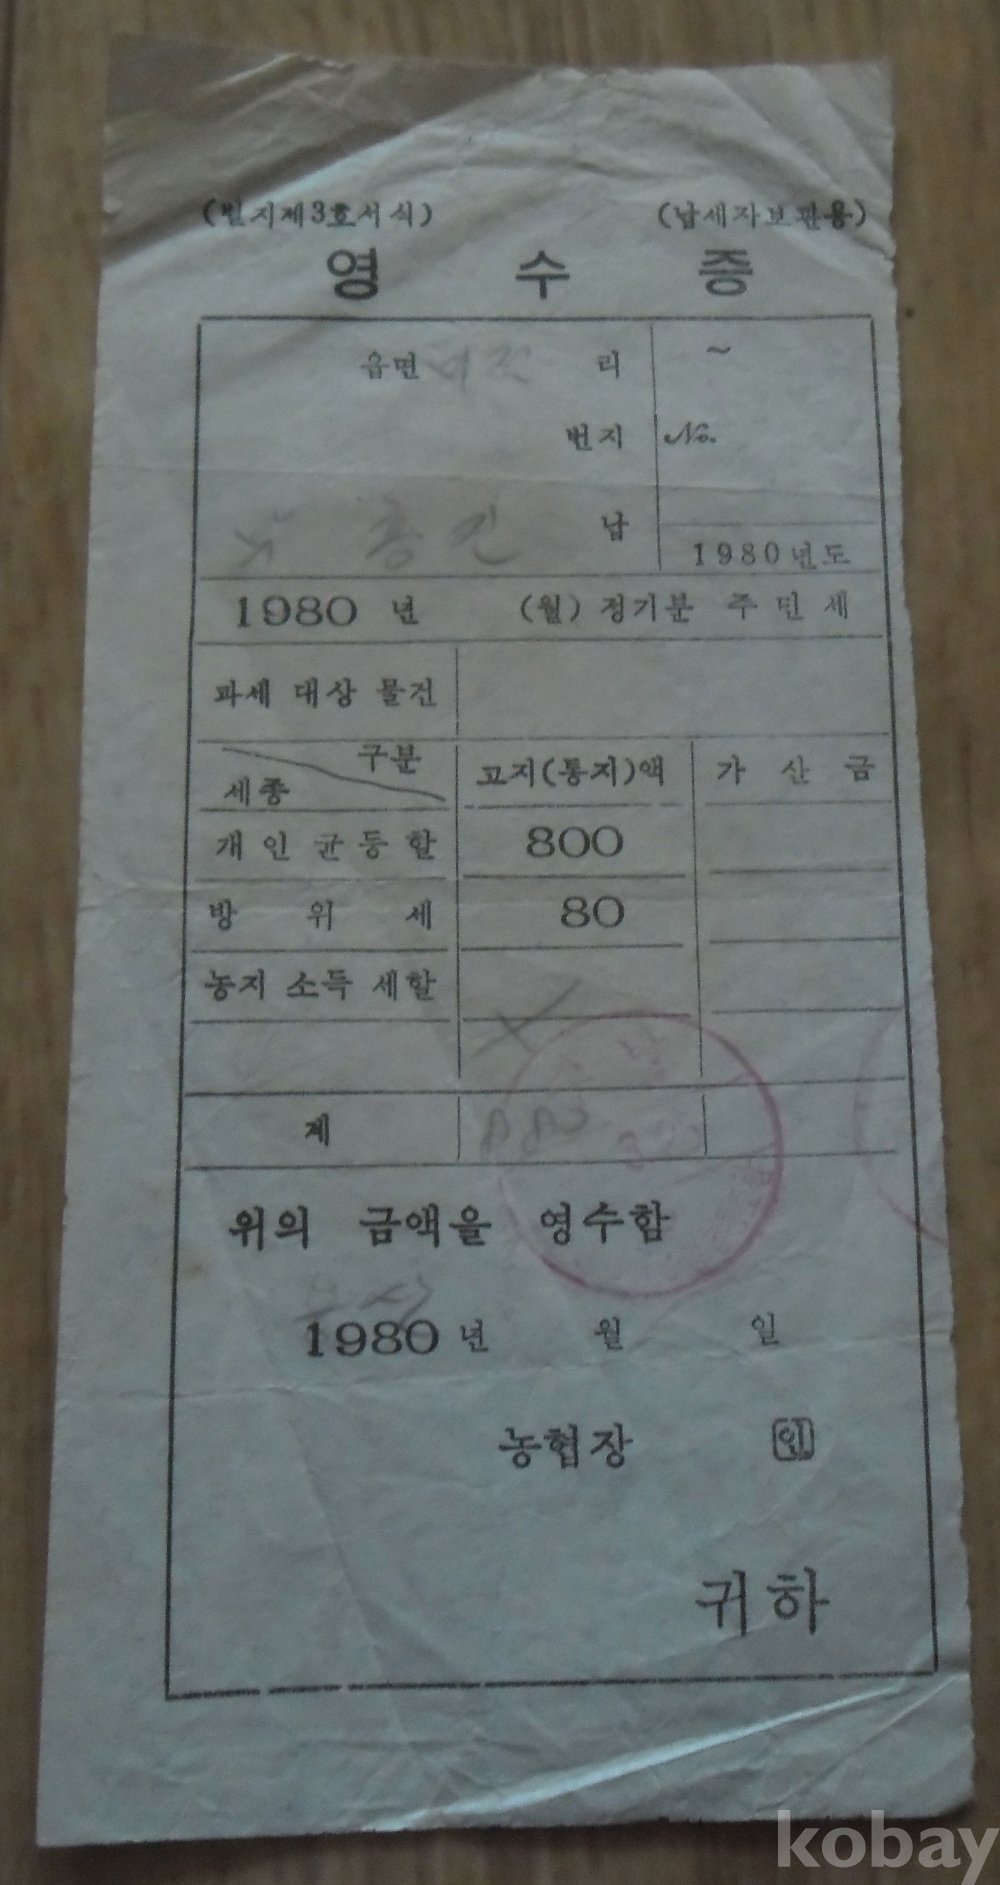 (별지제3호서식) (납세자보관용)
영 수 증
읍면 리 ~
번지 No.
납
1980년도
1980 년 (월) 정기분 주민세
과세 대상 물건
구분
세종 고지(통지)액 가 산 금
개 인 균 등 할 800
방 위 세 80
농지 소득 세할
계 880
위의 금액을 영수함
1980 년 월 일
농협장 인
귀하
kobay